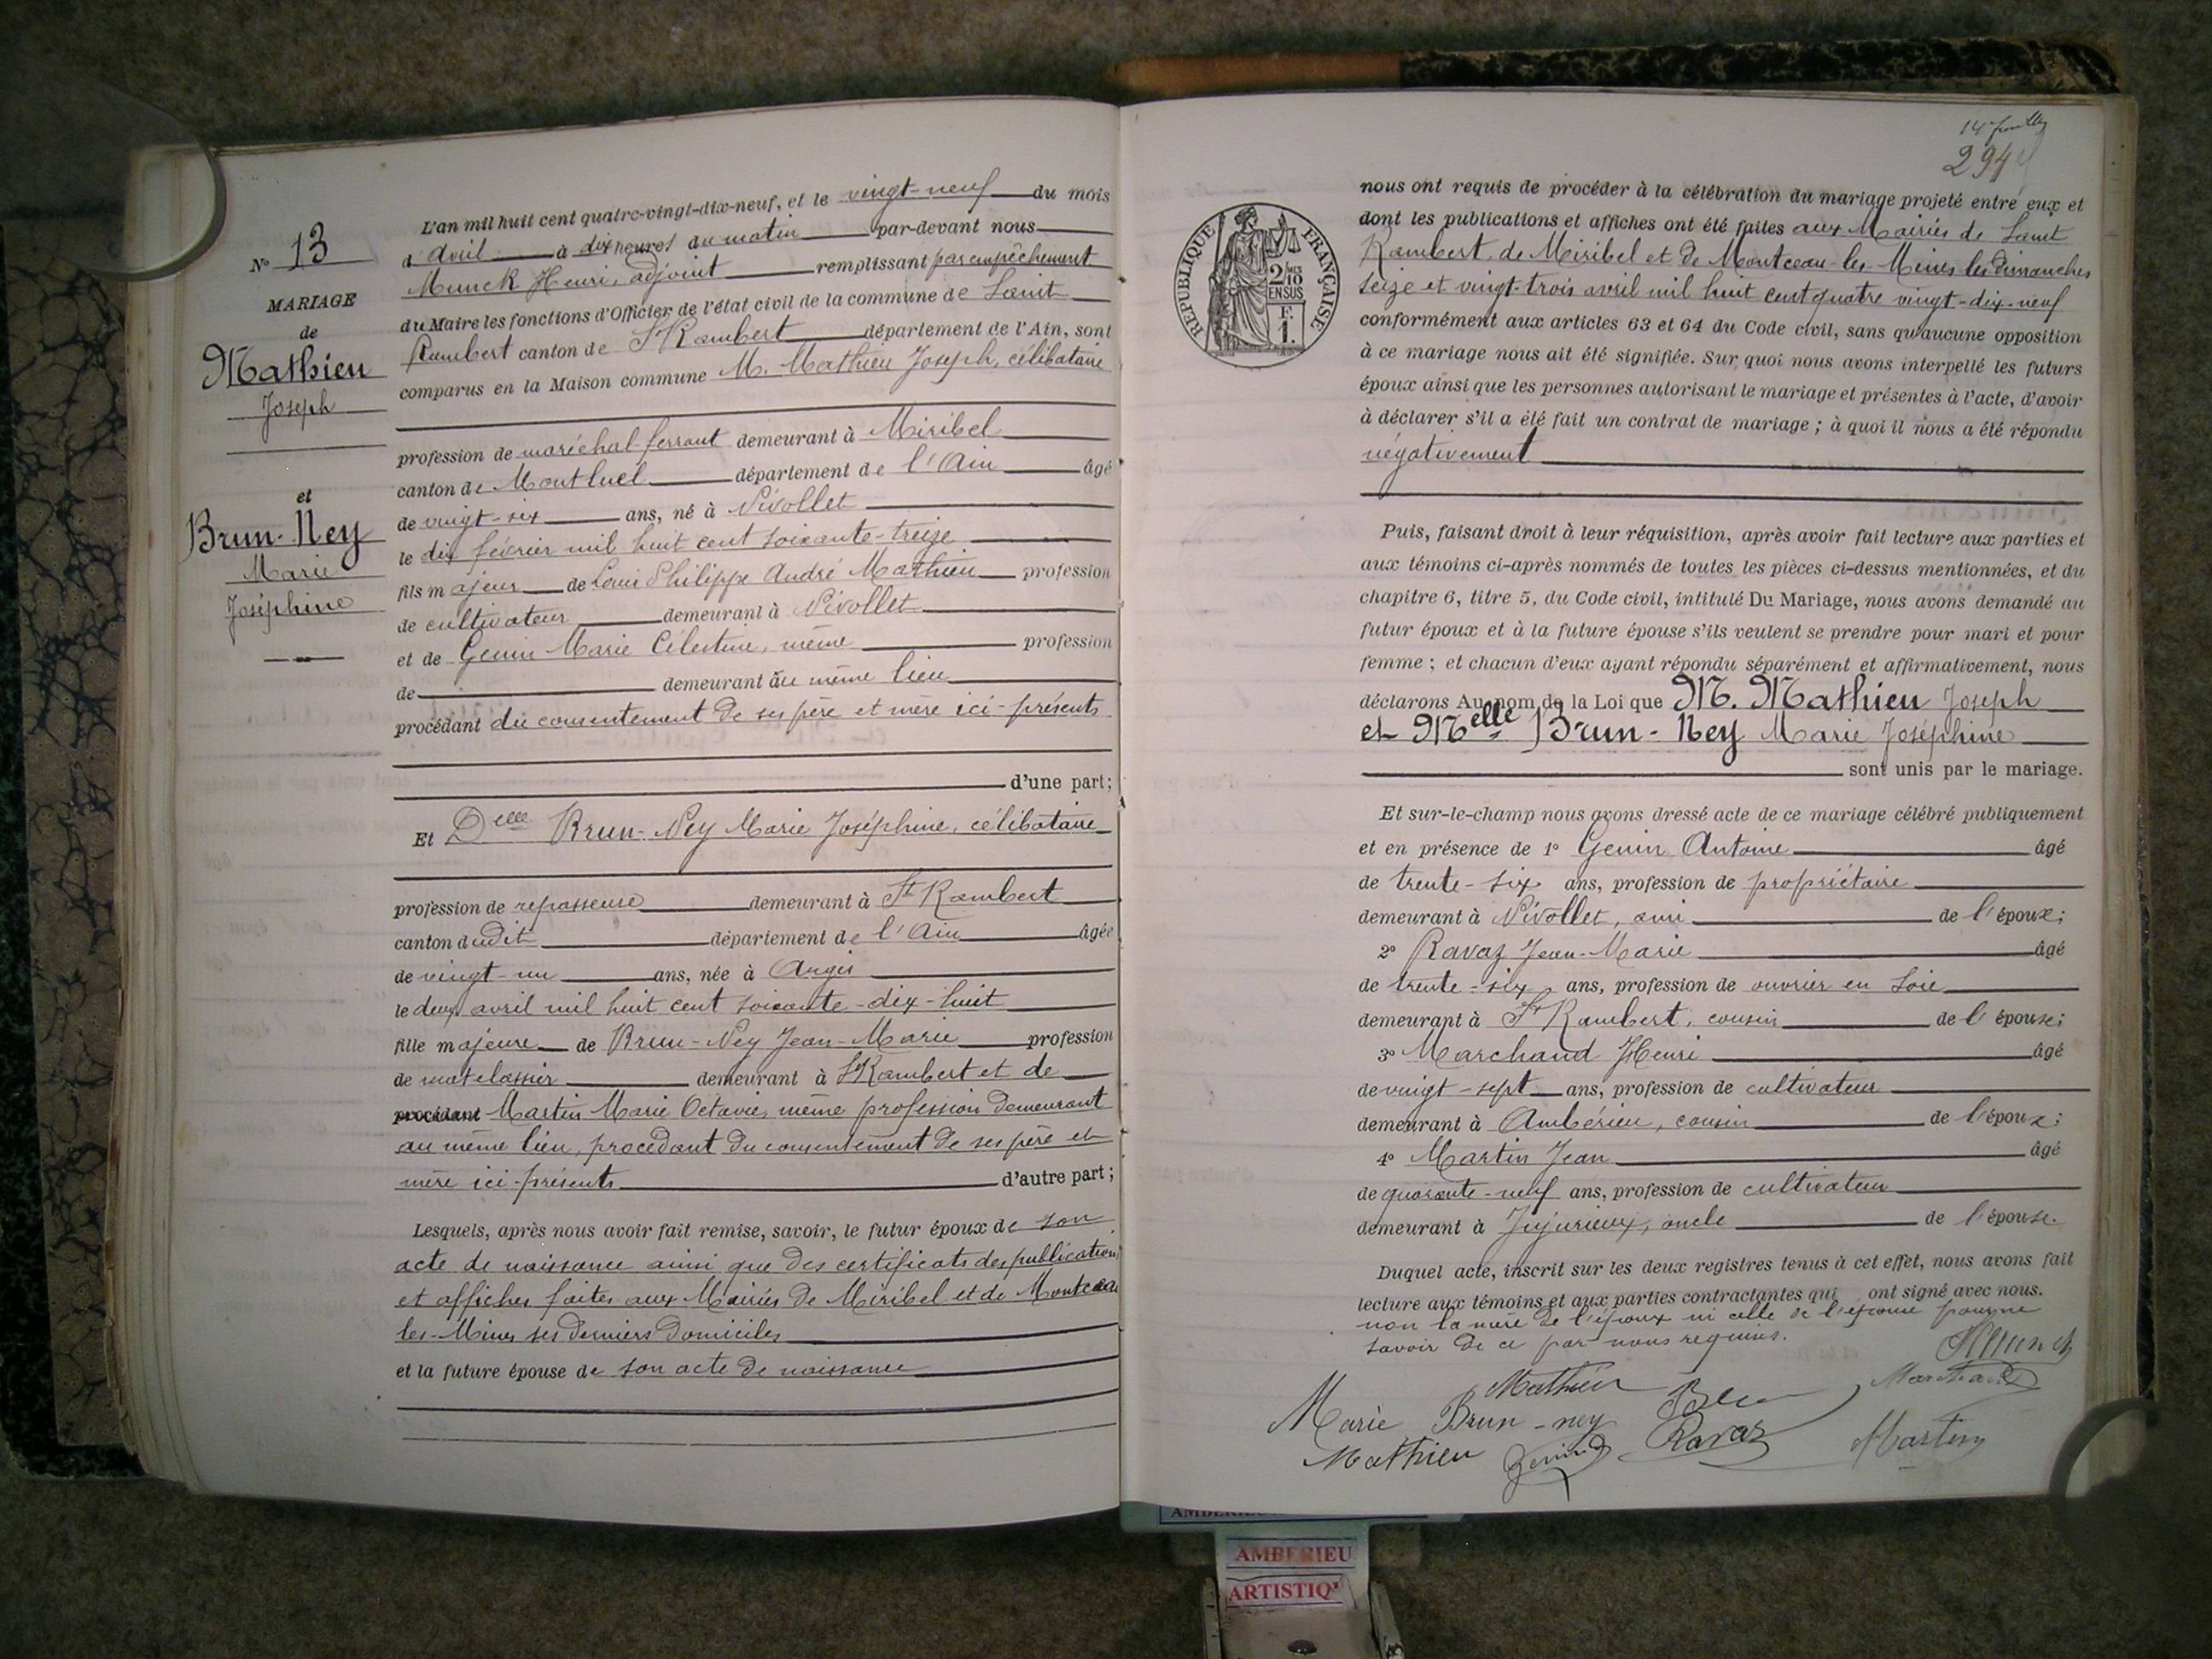 N° 13
MARIAGE
de
Mathieu
Joseph
et
Brun-Ney
Marie
Joséphine
L'an mil huit cent quatre-vingt-dix-neuf, et le vingt-neuf du mois
d'Avril à dix heures du matin par-devant nous
Munck Henri, adjoint remplissant par empêchement
du Maire les fonctions d'Officier de l'état civil de la commune de Saint
Rambert canton de St Rambert département de l'Ain, sont
comparus en la Maison commune M. Mathieu Joseph, célibataire
profession de maréchal-ferrant demeurant à Miribel
canton de Montluel département de l'Ain âgé
de vingt-six ans, né à Nivollet
le dix février mil huit cent soixante-treize
fils majeur de Louis Philippe André Mathieu profession
de cultivateur demeurant à Nivollet
et de Genin Marie Célestine, même profession
de demeurant au même lieu
procédant du consentement de ses père et mère ici-présents
d'une part;
Et Delle Brun-Ney Marie Joséphine, célibataire
profession de repasseuse demeurant à St Rambert
canton dudit département de l'Ain âgée
de vingt-un ans, née à Argis
le deux avril mil huit cent soixante-dix-huit
fille majeure de Brun-Ney Jean-Marie profession
de matelassier demeurant à St Rambert et de
procédant Martin Marie Octavie, même profession demeurant
au même lieu, procédant du consentement de ses père et
mère ici-présents d'autre part;
Lesquels, après nous avoir fait remise, savoir, le futur époux de son
acte de naissance ainsi que des certificats des publications
et affiches faites aux Mairies de Miribel et de Montceau
les-Mines ses derniers domiciles
et la future épouse de son acte de naissance
294
RÉPUBLIQUE FRANÇAISE
2/10 EN SUS
F.
1.
nous ont requis de procéder à la célébration du mariage projeté entre eux et
dont les publications et affiches ont été faites aux Mairies de Saint
Rambert, de Miribel et de Montceau-les-Mines les dimanches
seize et vingt-trois avril mil huit cent quatre vingt-dix-neuf
conformément aux articles 63 et 64 du Code civil, sans qu'aucune opposition
à ce mariage nous ait été signifiée. Sur quoi nous avons interpellé les futurs
époux ainsi que les personnes autorisant le mariage et présentes à l'acte, d'avoir
à déclarer s'il a été fait un contrat de mariage; à quoi il nous a été répondu
négativement
Puis, faisant droit à leur réquisition, après avoir fait lecture aux parties et
aux témoins ci-après nommés de toutes les pièces ci-dessus mentionnées, et du
chapitre 6, titre 5, du Code civil, intitulé Du Mariage, nous avons demandé au
futur époux et à la future épouse s'ils veulent se prendre pour mari et pour
femme; et chacun d'eux ayant répondu séparément et affirmativement, nous
déclarons Au nom de la Loi que M. Mathieu Joseph
et Melle Brun-Ney Marie Joséphine
sont unis par le mariage.
Et sur-le-champ nous avons dressé acte de ce mariage célébré publiquement
et en présence de 1° Genin Antoine âgé
de trente-six ans, profession de propriétaire
demeurant à Nivollet, ami de l'époux;
2° Ravaz Jean-Marie âgé
de trente-six ans, profession de ouvrier en soie
demeurant à St Rambert, cousin de l'épouse;
3° Marchand Henri âgé
de vingt-sept ans, profession de cultivateur
demeurant à Ambérieu, cousin de l'époux;
4° Martin Jean âgé
de quarante-neuf ans, profession de cultivateur
demeurant à Jujurieux, oncle de l'épouse.
Duquel acte, inscrit sur les deux registres tenus à cet effet, nous avons fait
lecture aux témoins et aux parties contractantes qui ont signé avec nous.
non la mère de l'époux ni celle de l'épouse pour ne
savoir de ce par nous requises.
Munck
Mathieu
Marchand
Marie Brun-ney
Mathieu
Genin
Ravaz
Martin
AMBERIEU
ARTISTIQ